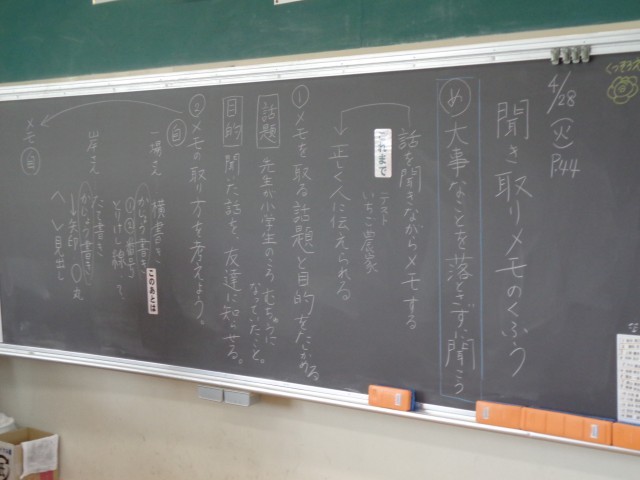 4/28(火) P.44
聞き取りメモのくふう
め 大事なことを落とさずに聞こう
これまで
話を聞きながらメモする
テスト
いちご農家
↓正しく人に伝えられる
① メモを取る話題と目的をたしかめる
話題 先生が小学生のころ むちゅうに
なっていたこと。
目的 聞いた話を、友達に知らせる。
② メモの取り方を考えよう。
自
横書き
かじょう書き
①②番号
とりけし線
このあとは
岸さん
たて書き
かじょう書き
↓矢印 ○丸
見出し
メモ 自